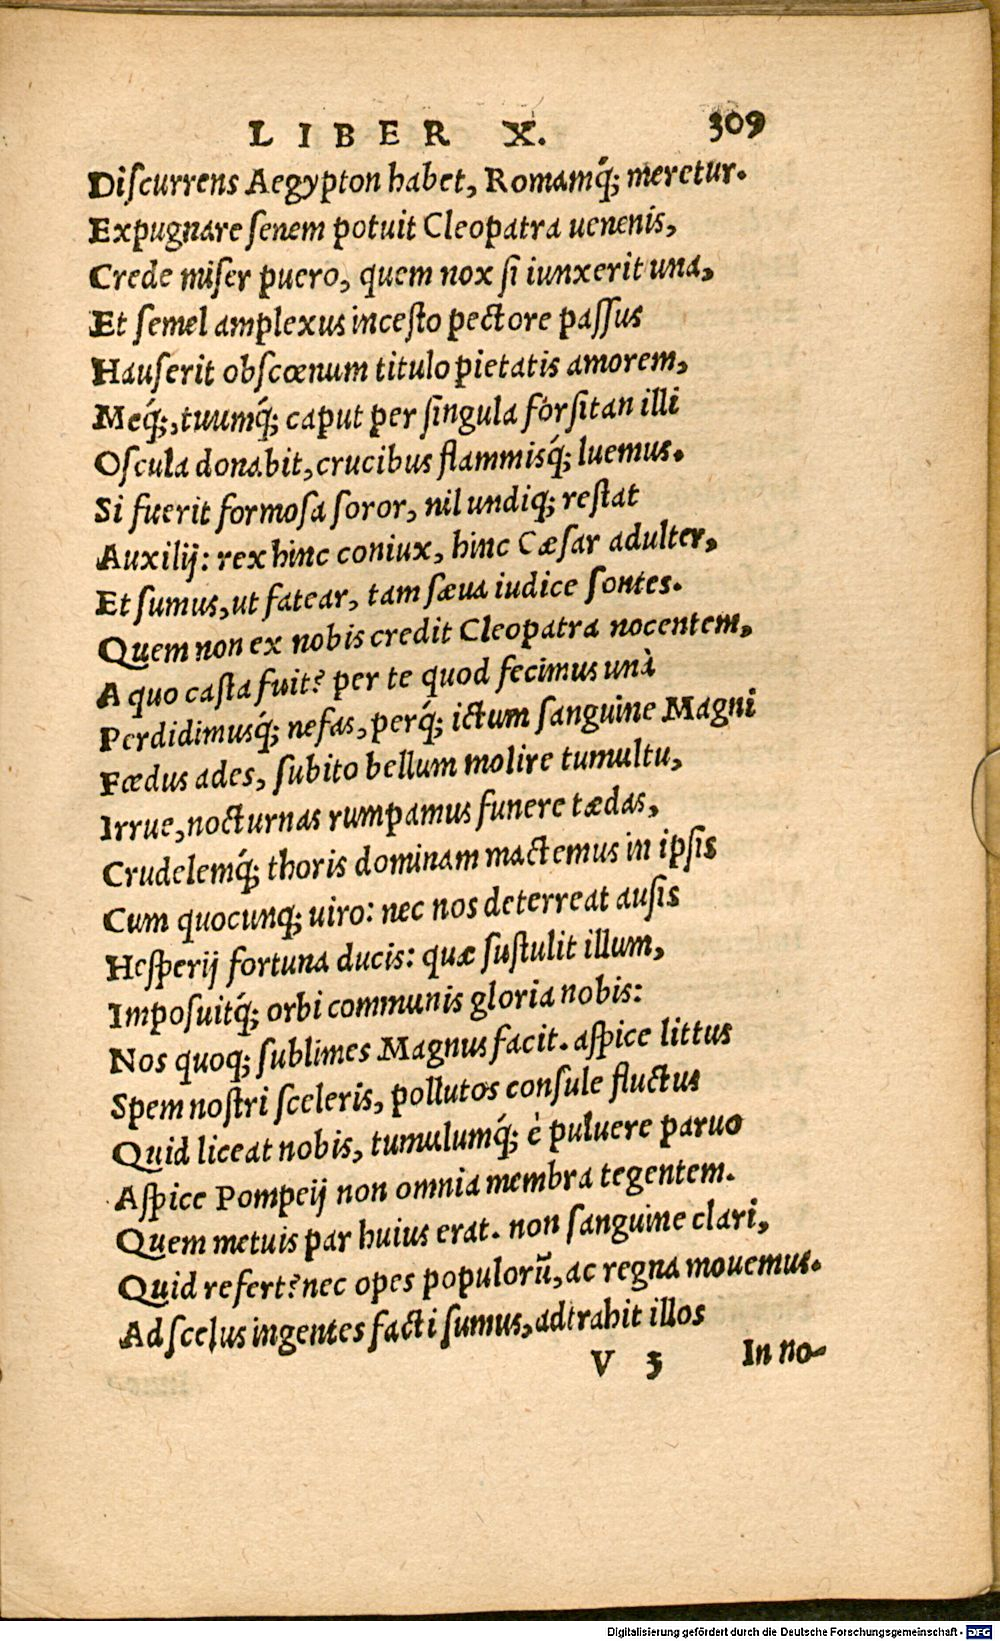 LIBER X. 309
Diſcurrens Aegypton habet, Romamq́; meretur.
Expugnare ſenem potuit Cleopatra uenenis,
Crede miſer puero, quem nox ſi iunxerit una,
Et ſemel amplexus inceſto pectore paſſus
Hauſerit obſcœnum titulo pietatis amorem,
Meq́;, tuumq́; caput per ſingula forſitan illi
Oſcula donabit, crucibus flammisq́; luemus.
Si fuerit formoſa ſoror, nil undiq; reſtat
Auxilij: rex hinc coniux, hinc Cæſar adulter,
Et ſumus, ut fatear, tam ſæua iudice ſontes.
Quem non ex nobis credit Cleopatra nocentem,
A quo caſta fuit? per te quod fecimus unà
Perdidimusq́; nefas, perq́; ictum ſanguine Magni
Fœdus ades, ſubito bellum molire tumultu,
Irrue, nocturnas rumpamus funere tædas,
Crudelemq́; thoris dominam mactemus in ipſis
Cum quocunq; uiro: nec nos deterreat auſis
Heſperij fortuna ducis: quæ ſuſtulit illum,
Impoſuitq́; orbi communis gloria nobis:
Nos quoq; ſublimes Magnus facit. aſpice littus
Spem noſtri ſceleris, pollutos conſule fluctus
Quid liceat nobis, tumulumq́; è puluere paruo
Aſpice Pompeij non omnia membra tegentem.
Quem metuis par huius erat. non ſanguine clari,
Quid refert? nec opes populorũ, ac regna mouemus.
Ad ſcelus ingentes facti ſumus, adtrahit illos
V 3 In no-
Digitalisierung gefördert durch die Deutsche Forschungsgemeinschaft - DFG